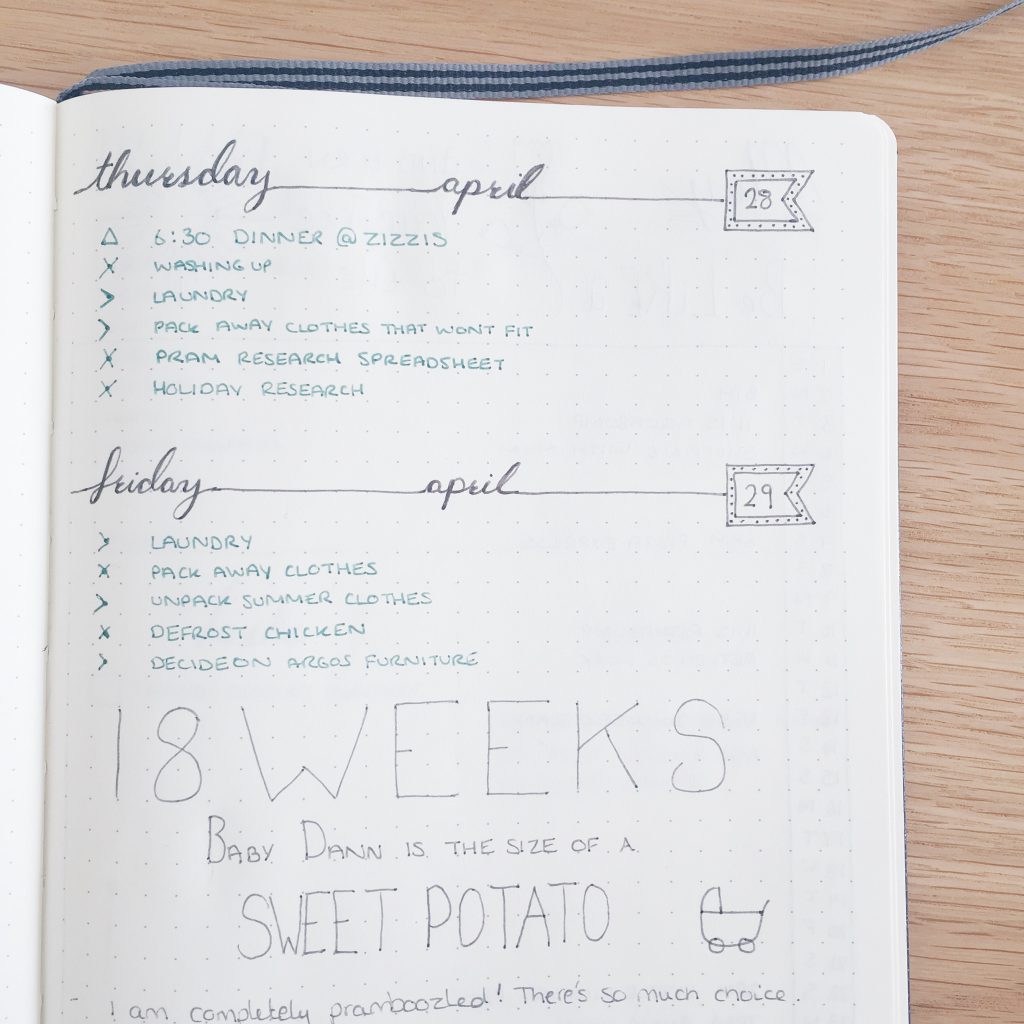 thursday april 28
△ 6:30 DINNER @ ZIZZIS
X WASHING UP
> LAUNDRY
> PACK AWAY CLOTHES THAT WONT FIT
X PRAM RESEARCH SPREADSHEET
X HOLIDAY RESEARCH
friday april 29
> LAUNDRY
X PACK AWAY CLOTHES
> UNPACK SUMMER CLOTHES
X DEFROST CHICKEN
> DECIDE ON ARGOS FURNITURE
18 WEEKS
BABY DANN IS THE SIZE OF A
SWEET POTATO
- I am completely pramboozled! There's so much choice.